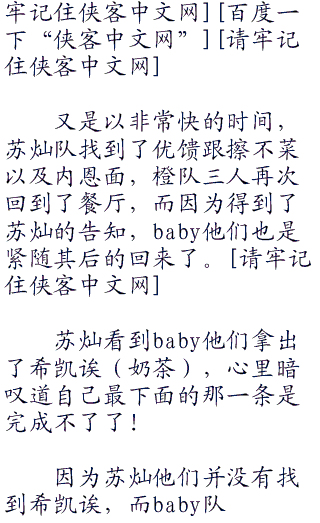 牢记住侠客中文网][百度一
下“侠客中文网”][请牢记
住侠客中文网]
又是以非常快的时间，
苏灿队找到了优馈跟擦不菜
以及内恩面，橙队三人再次
回到了餐厅，而因为得到了
苏灿的告知，baby他们也是
紧随其后的回来了。[请牢记
住侠客中文网]
苏灿看到baby他们拿出
了希凯诶（奶茶），心里暗
叹道自己最下面的那一条是
完成不了了！
因为苏灿他们并没有找
到希凯诶，而baby队